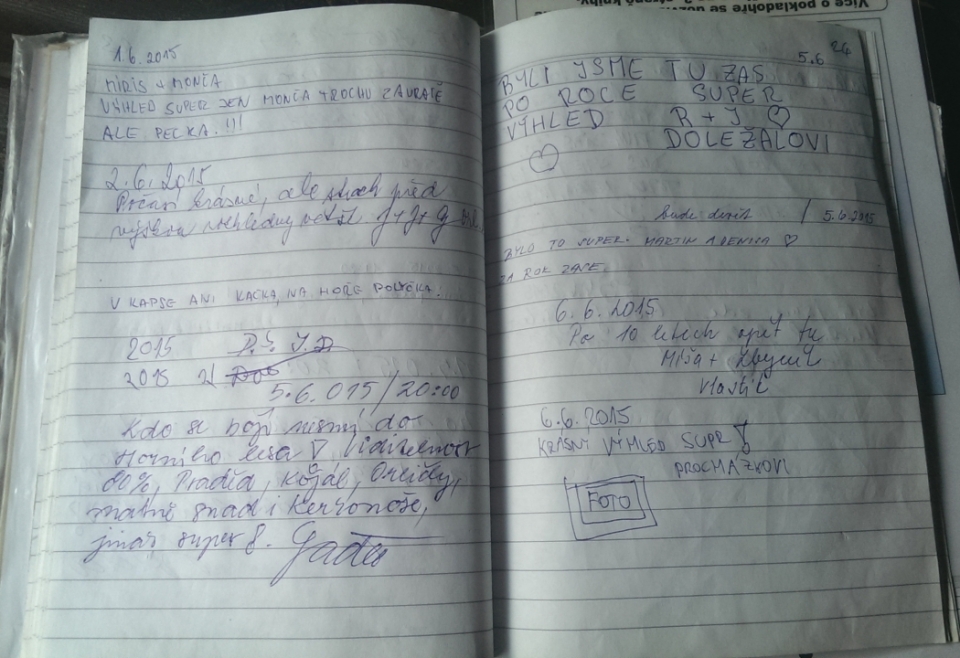 1.6.2015
MIRIS + MONČA
VÝHLED SUPER JEN MONČA TROCHU ZÁVRATĚ
ALE PECKA.!!!
2.6.2015
Počasí krásné, ale strach před
výškou rozhledny větší
V KAPSE ANI KAČKA, NA HOŘE POLIČKA!
2015 P.Š. J.D
2015
5.6.015/20:00
Kdo se bojí nesmí do
Horního lesa Viditelnost
80%, Praděd, Kojál, Orličky,
matně snad i Kerkonoše,
jinak super 8.
Gaďa
24
5.6
BYLI JSME TU ZAS
PO ROCE SUPER
VÝHLED R + J
DOLEŽALOVI
bude déšť / 5.6.2015
BYLO TO SUPER. MARTIN A DENISA
ZA ROK ZASE
6.6.2015
Po 10 letech opět tu
Míša + Zbyněk
Vlastík
6.6.2015
KRÁSNÝ VÝHLED SUPR!
PROCHÁZKOVI
FOTO
Více o pokladohře se
knihy.